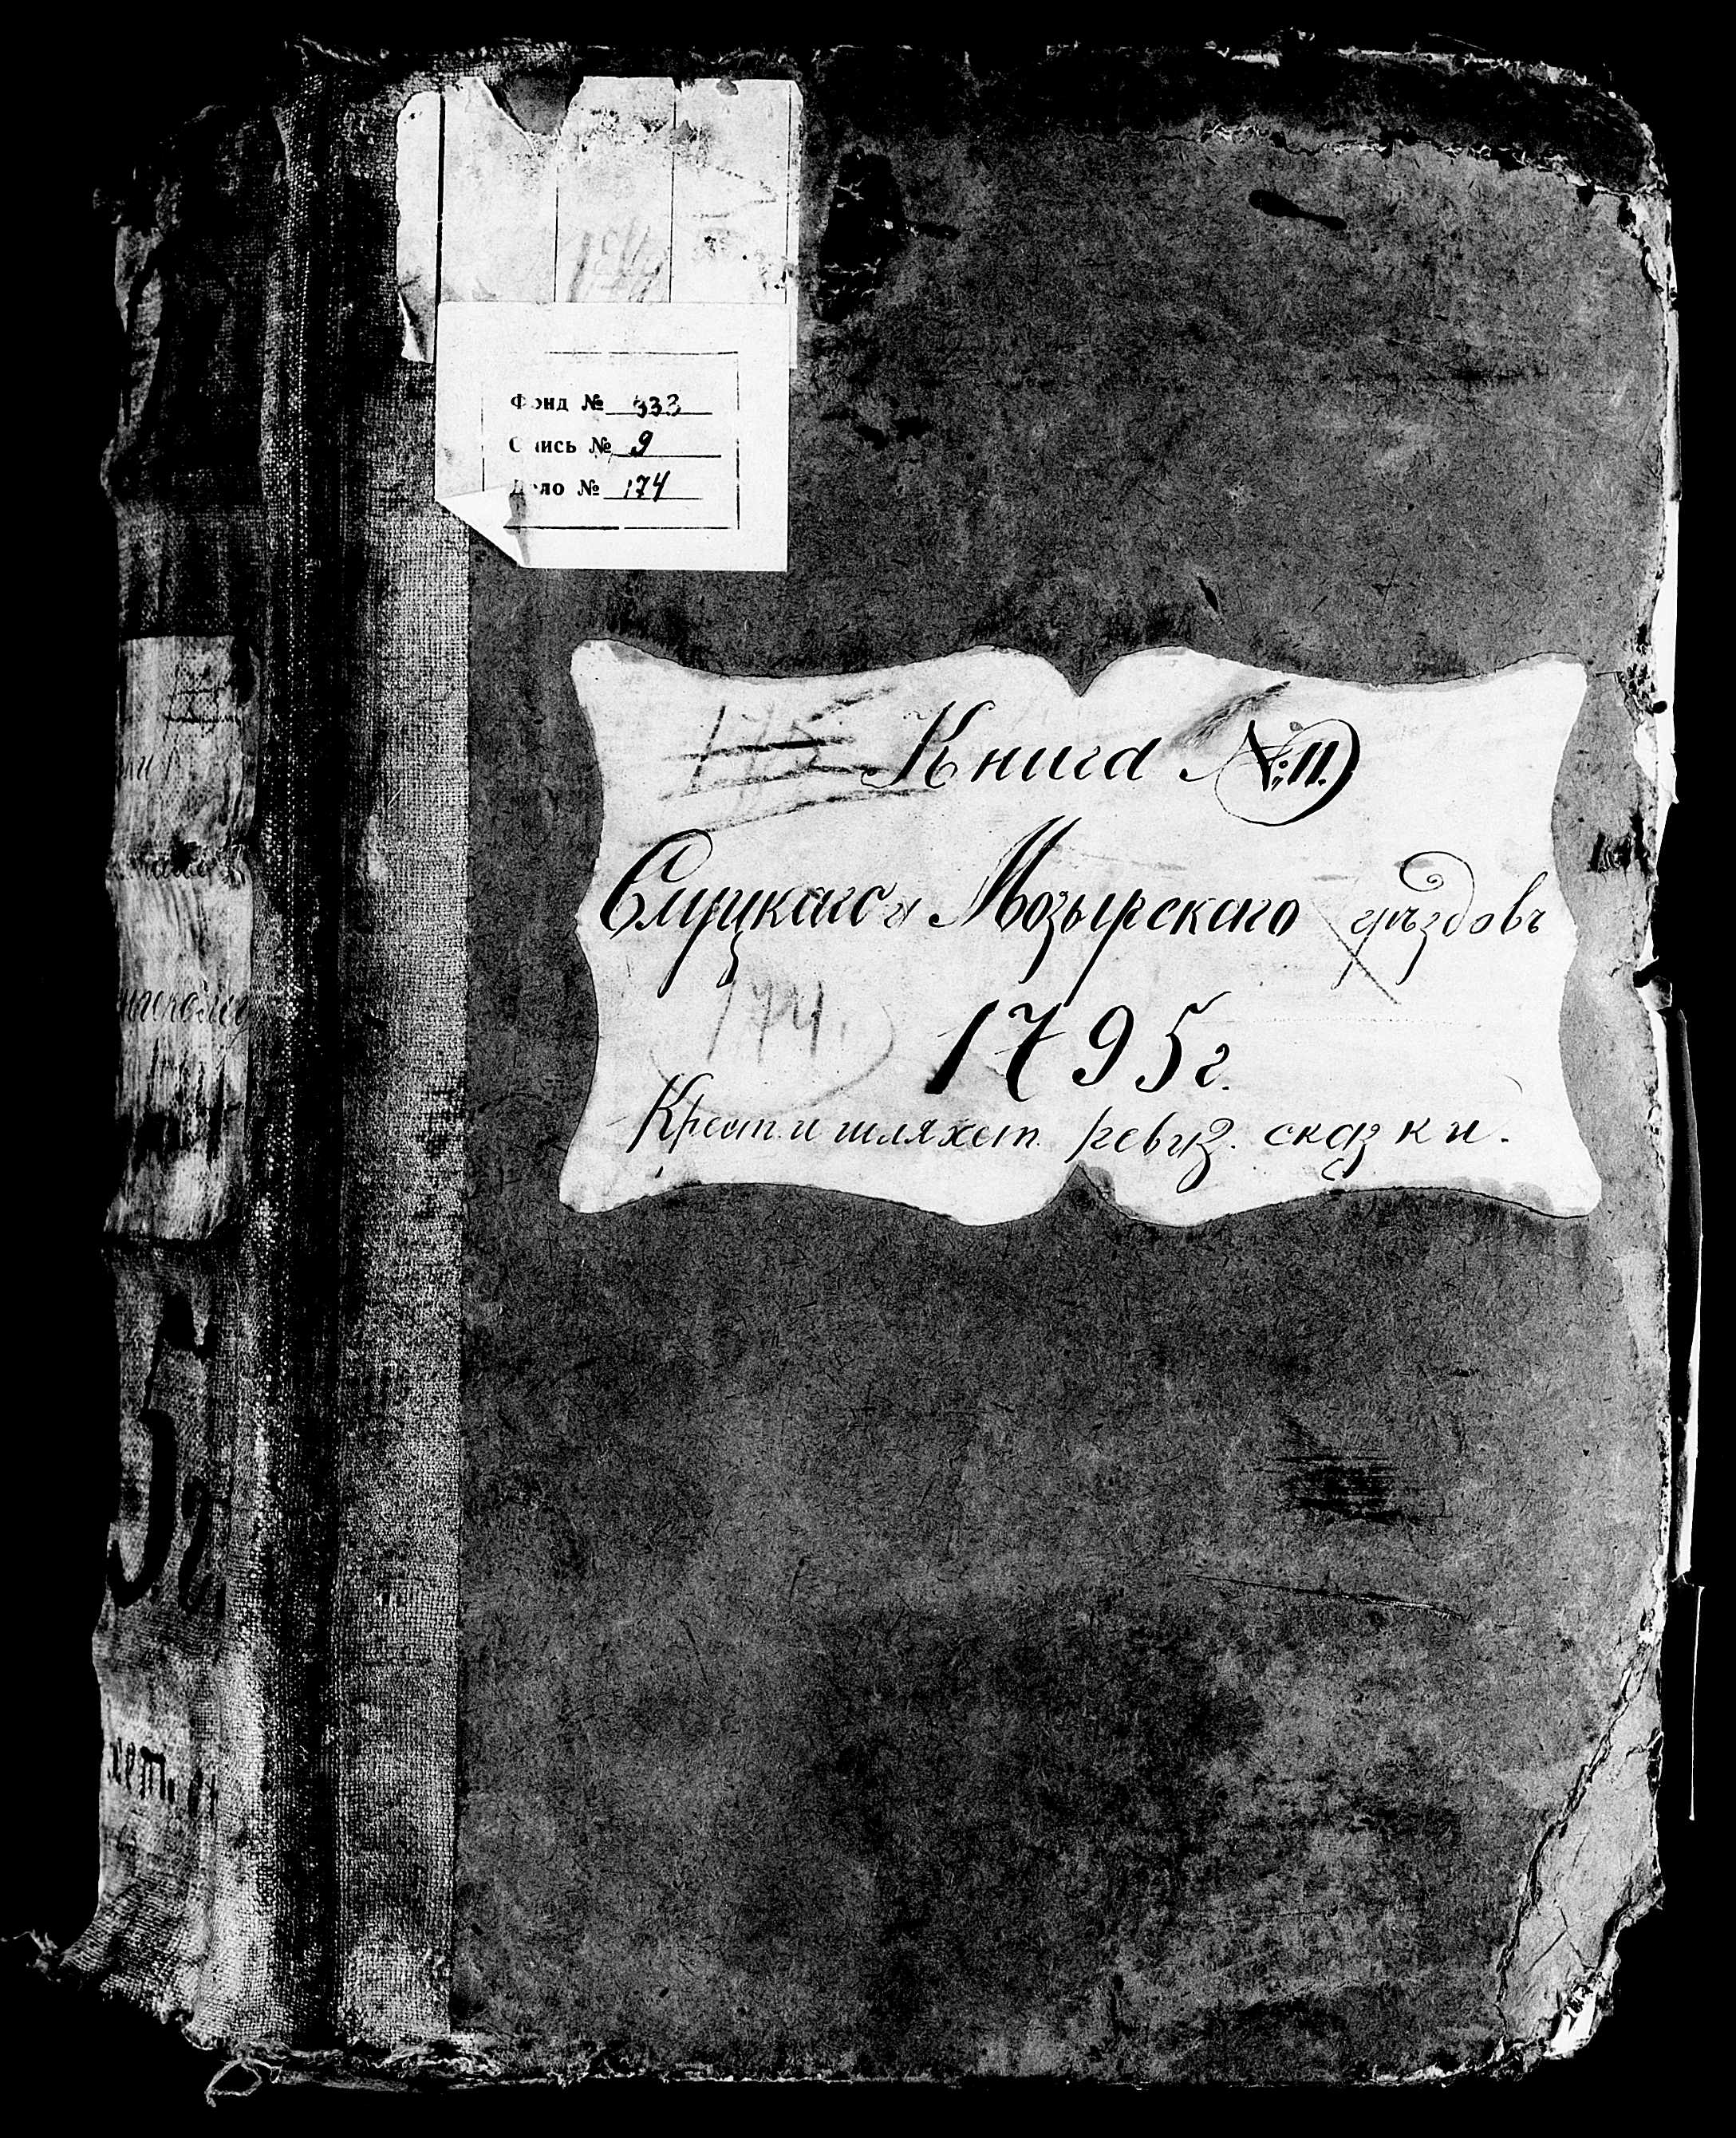 Фонд № 333
Опись № 9
Дело № 174
175
Книга №: 11.
Слуцкаго и Мозырскаго уѣздовъ
174.
1795 г.
Крест. и шляхет. ревиз. сказки.
5 г.
хет. и